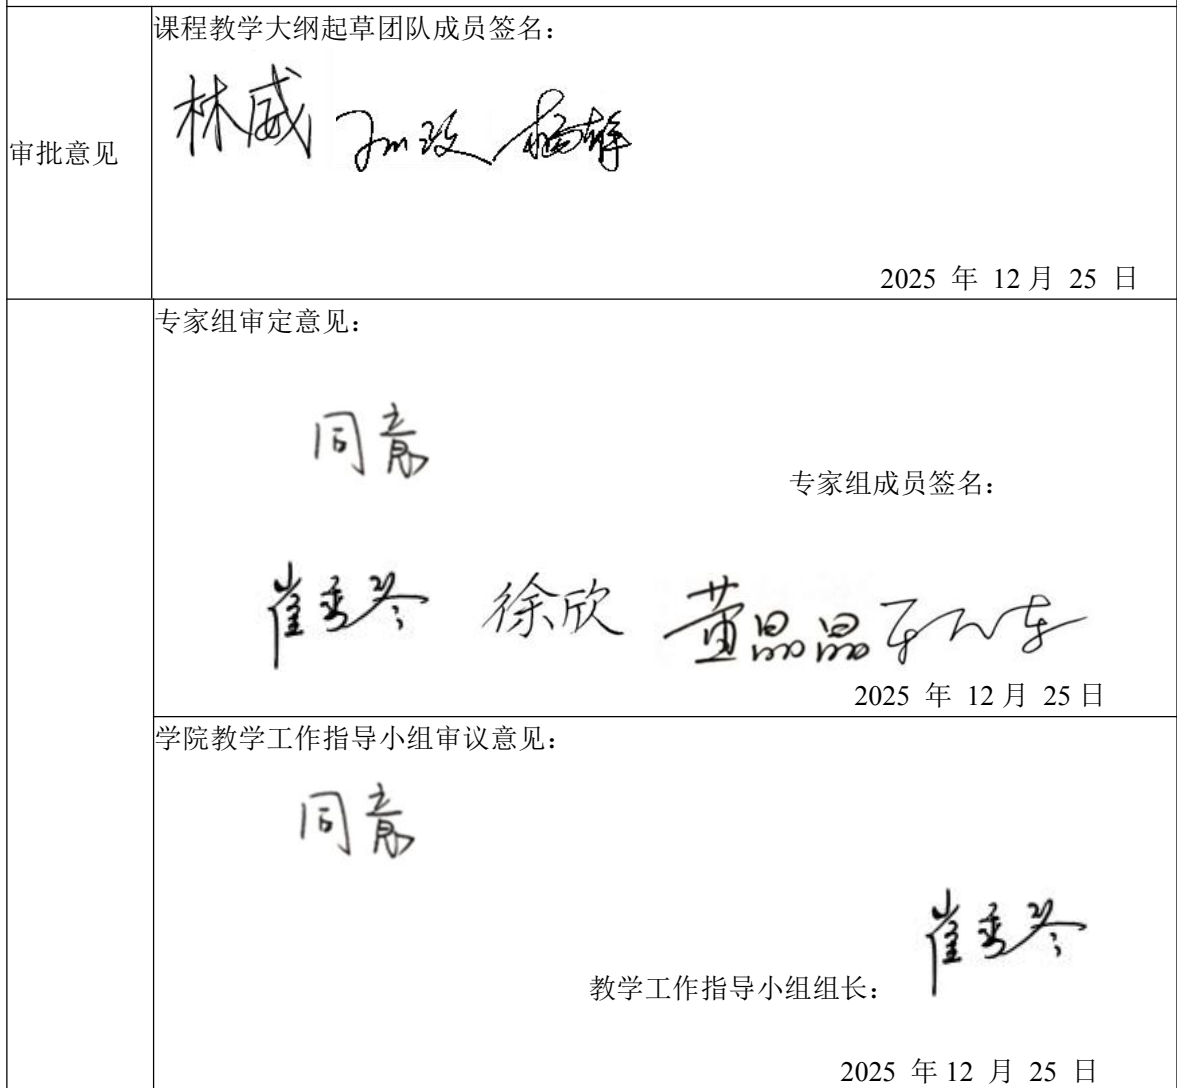 课程教学大纲起草团队成员签名：
林威
审批意见
2025 年 12月 25 日
专家组审定意见：
同意
专家组成员签名：
崔秀琴 徐欣 黄晶晶
2025 年 12月 25日
学院教学工作指导小组审议意见：
同意
崔秀琴
教学工作指导小组组长：
2025 年12 月 25 日